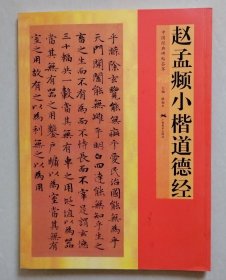 赵孟頫小楷道德经
中国经典碑帖荟萃
乎滌除玄覽能無疵乎愛民治國能無為乎
天門開闔能無雌乎明白四達能無知乎生之
畜之生而不有為而不恃長而不宰是謂玄德
三十輻共一轂當其無有車之用埏埴以為器
當其無有器之用鑿戶牖以為室當其無有
室之用故有之以為利無之以為用